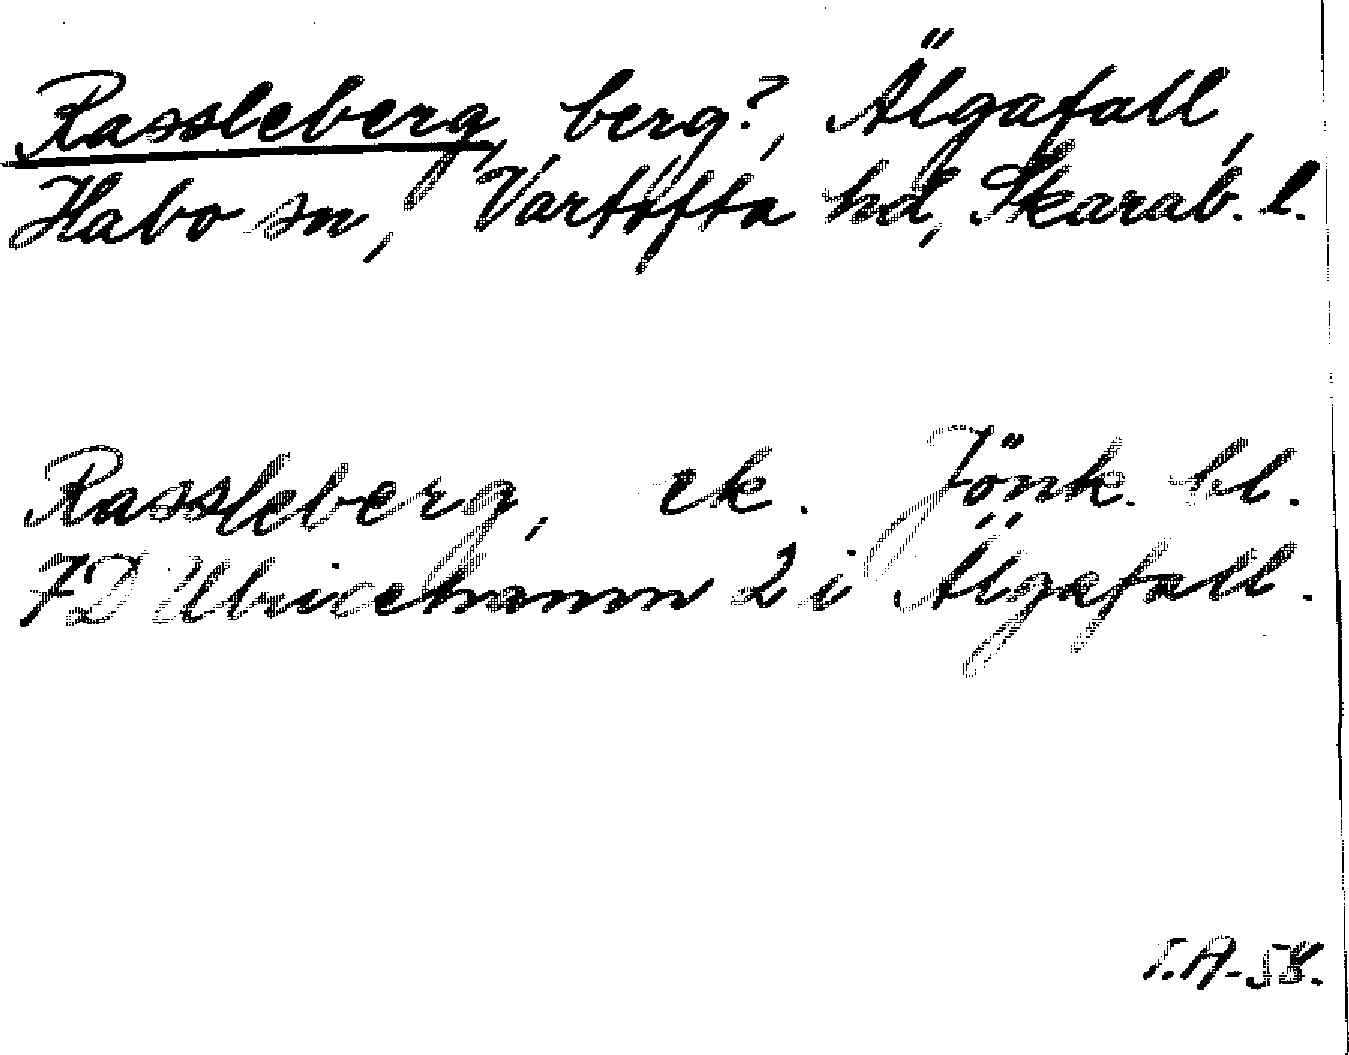 Rassleberg, berg?, Älgafall,
Habo sn, Vartofta hd, Skarab. l.
Rassleberg, ek. Jönk. bl.
7D Ulricehamn 2 i Älgafall.
T.A-58.